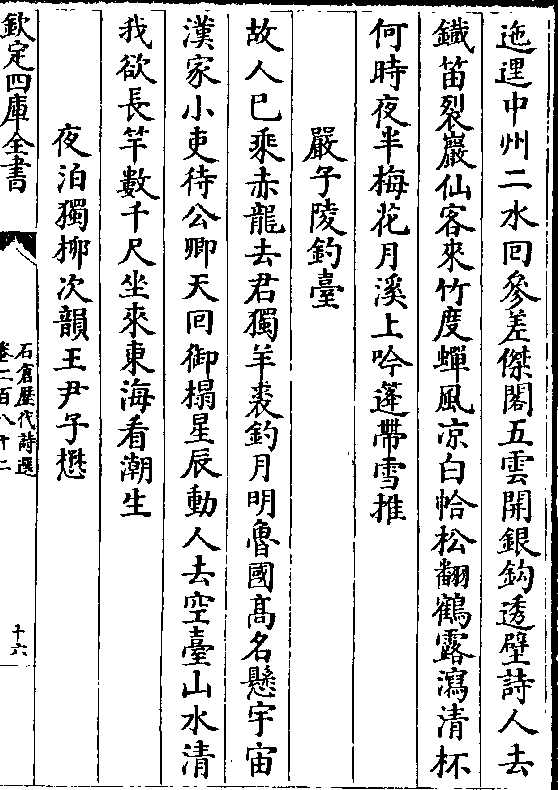 迤逕中州二水回參差傑閣五雲開銀鈎透壁詩人去
鐵笛裂巖仙客來竹度蟬風凉白帢松翻鶴露瀉清杯
何時夜半梅花月溪上吟蓬帶雪推
嚴子陵釣臺
故人已乘赤龍去君獨羊裘釣月明魯國髙名懸宇宙
漢家小吏待公卿天回御榻星辰動人去空臺山水清
我欲長竿數千尺坐來東海看潮生
夜泊獨桺次韻王尹子懋
欽定四庫全書
石倉歴代詩選
卷二百八十二
十六